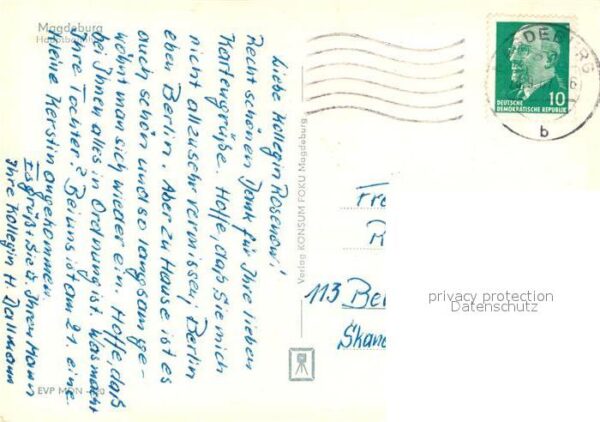 Magdeburg
Liebe Kollegin Rosenow!
Recht schönen Dank für Ihre lieben
Kartengrüße. Hoffe, daß Sie mich
nicht allzusehr vermissen, Berlin
eben Berlin. Aber zu Hause ist es
auch schön und so langsam ge-
wöhnt man sich wieder ein. Hoffe, daß
bei Ihnen alles in Ordnung ist. Was macht
Ihre Tochter? Bei uns ist am 21. eine
kleine Kerstin angekommen.
Es grüßt Sie u. Ihren Mann
Ihre Kollegin H. Dallmann
EVP MDN
Verlag KONSUM FOKU Magdeburg
DEBURG
b
10
DEUTSCHE
DEMOKRATISCHE REPUBLIK
Fr
R
113 Be
Skan
privacy protection
Datenschutz